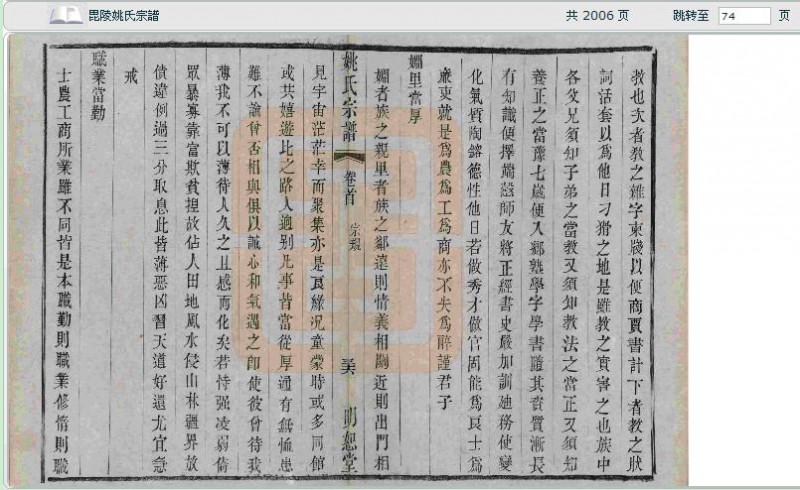 毘陵姚氏宗譜
共 2006 页
跳转至 74 页
教也次者教之雜字柬牋以便商賈書計下者教之狀
詞活套以為他日刁猾之地是雖教之實害之也族中
各父兄須知子弟之當教又須知教法之當正又須知
養正之當豫七歲便入鄉塾學字學書隨其資質漸長
有知識便擇端慤師友將正經書史嚴加訓廸務使變
化氣質陶鎔德性他日若做秀才做官固能為良士為
廉吏就是為農為工為商亦不失為醇謹君子
婣里當厚
婣者族之親里者族之鄰遠則情義相關近則出門相
姚氏宗譜
卷首
宗規
明恕堂
見宇宙茫茫幸而聚集亦是良緣況童蒙時或多同館
或共嬉遊比之路人逈别凡事皆當從厚通有無恤患
難不論曾否相與俱以誠心和氣遇之即使彼曾待我
薄我不可以薄待人久之且感而化矣若恃强凌弱倚
眾暴寡靠富欺貧捏故佔人田地風水侵山林疆界放
債違例過三分取息此皆薄惡凶習天道好還尤宜急
戒
職業當勤
士農工商所業雖不同皆是本職勤則職業修惰則職